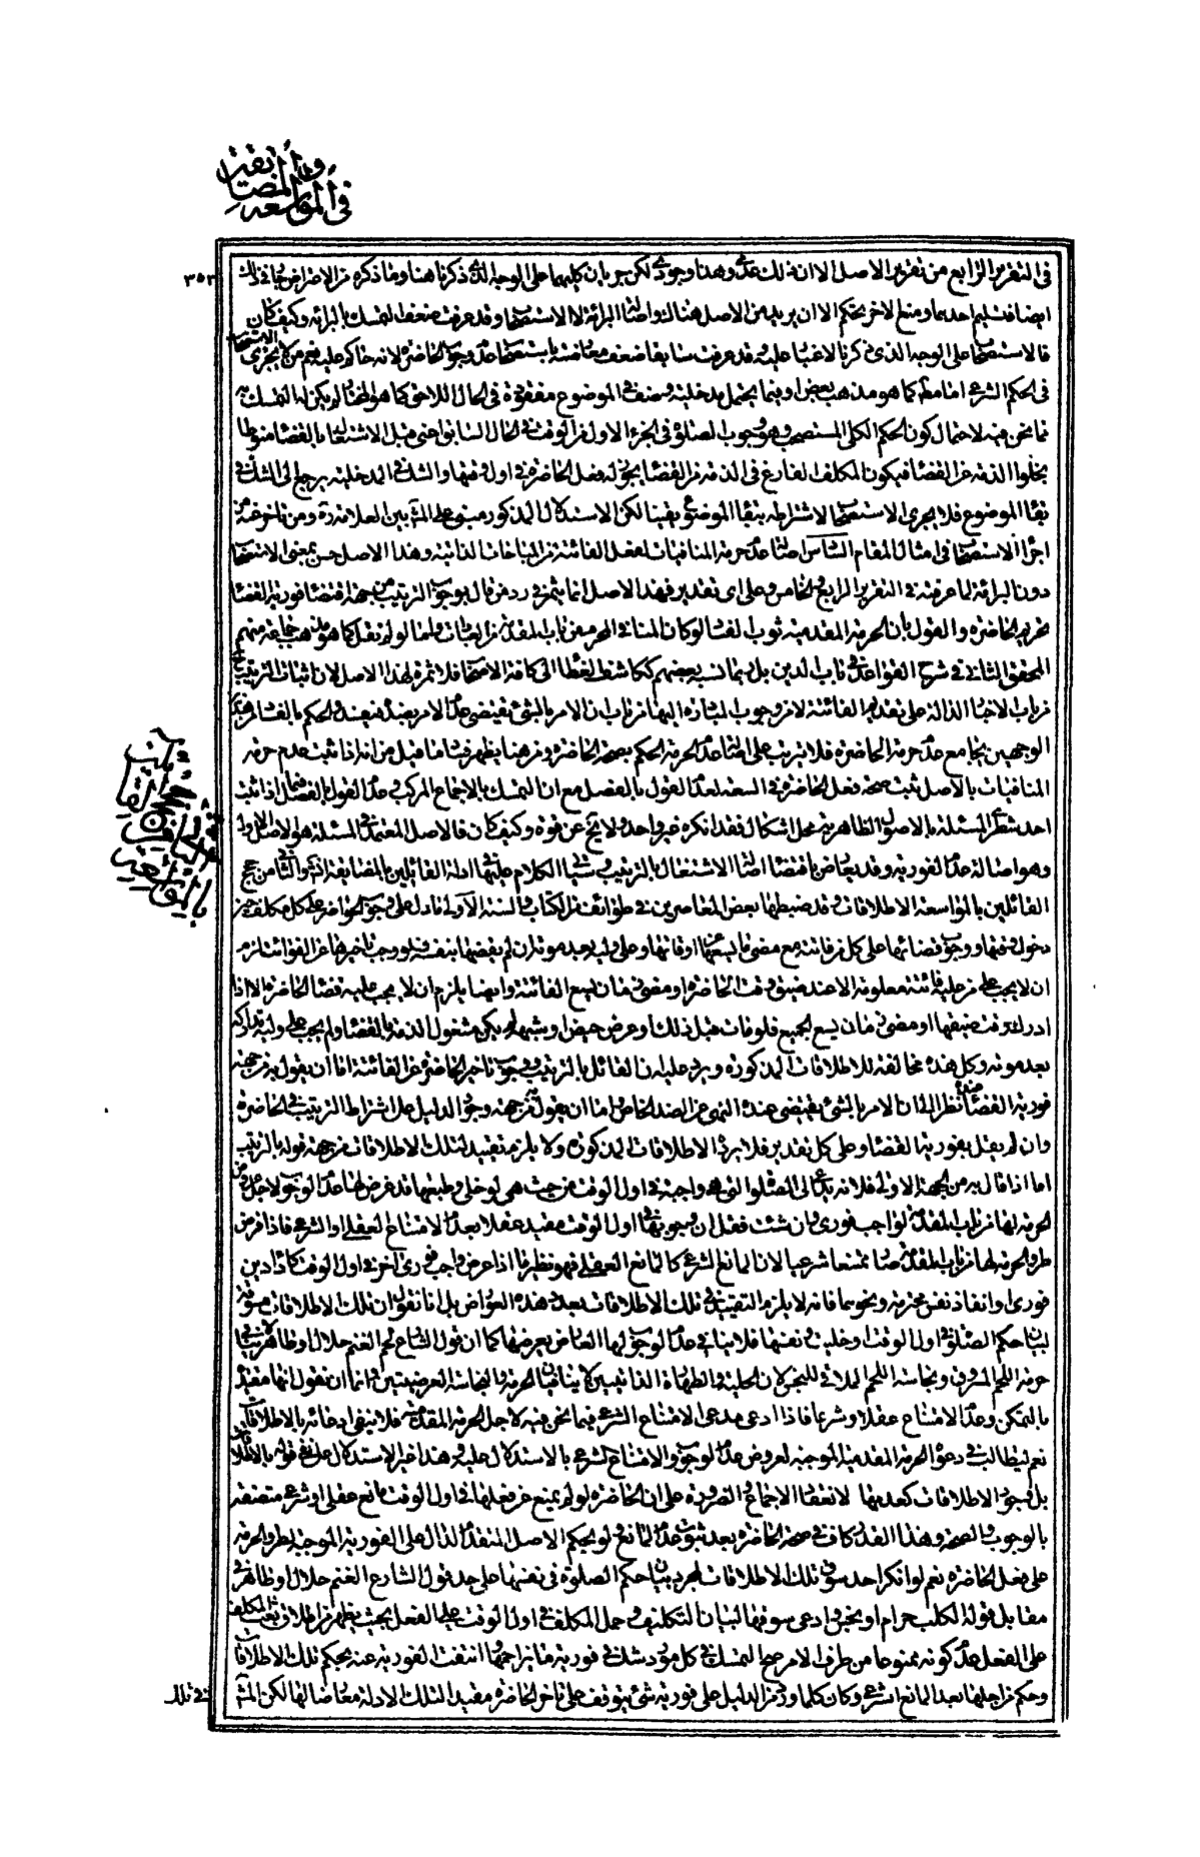 في المواسعة والمضايقة
٣٥٣
في التقرير الرابع من تقرير الاصل الا ان ذلك عدمى وهذا وجودى لكن جريان كليهما على الوجه الذى ذكرنا هنا وما ذكره من الاعتراض جار في ذلك
ايضا فتسليم احدهما ومنع الاخر تحكم الا ان يريد من الاصل هنالك اصالة البرائة لا الاستصحاب وقد عرفت ضعف التمسك بالبرائة وكيف كان
فالاستصحاب على الوجه الذى ذكرنا لا غبار عليه وقد عرفت سابقا ضعف معارضته باستصحاب عدم وجوب الحاضرة لانه حاكم عليه نعم من لا يجرى الاستصحاب
في الحكم الشرعى اما مط كما هو مذهب بعض او فيما يحتمل مدخلية وصف في الموضوع مفقود في الحال اللاحق كما هو المختار لم يكن له التمسك به
فيما نحن فيه لاحتمال كون الحكم الكلى المستصحب وهو وجوب الصلوة في الجزء الاول من الوقت في الحال السابق اعنى قبل الاشتغال بالقضاء منوطا
بخلو الذمة عن القضاء فيكون المكلف الفارغ في الذمة من القضاء يجوز له فعل الحاضرة في اول وقتها والشك في المدخلية يرجع الى الشك في
بقاء الموضوع فلا يجرى الاستصحاب لاشتراطه ببقاء الموضوع يقينا لكن الاستدلال المذكور مبنى على المش بين العلامة ره ومن تاخر عنه من
اجراء الاستصحاب في امثال المقام السادس اصالة عدم حرمة المنافيات لفعل الفائتة من المباحات الذاتية وهذا الاصل حسن بمعنى الاستصحاب
دون البرائة لما عرفته في التقرير الرابع والخامس وعلى اى تقدير فهذا الاصل انما يثمر في رد من قال بوجوب الترتيب من جهة اقتضاء فورية القضاء
تحريم الحاضرة والقول بان الحرمة المقدمية توجب الفساد لو كان المنافى المحرم من باب المقدمة من العبادات اما لو لم نقل كما هو مذهب جماعة منهم
المحقق الثانى في شرح القواعد في باب الدين بل ربما نسبه بعضهم ككاشف الغطاء الى كافة الاصحاب فلا ثمرة لهذا الاصل لان اثبات الترتيب ح
من باب الاخبار الدالة على تقديم الفائتة لا من وجوب المبادرة اليها من باب ان الامر بالشئ يقتضى عدم الامر بضده فيفسد والحكم بالفساد من هذين
الوجهين يجامع عدم حرمة الحاضرة فلا يترتب على اصالة عدم الحرمة الحكم بصحة الحاضرة ومن هنا يظهر فساد ما قيل من انه اذا ثبت عدم حرمة
المنافيات بالاصل ثبت صحة فعل الحاضرة في السعة لعدم القول بالفصل مع ان التمسك بالاجماع المركب وعدم القول بالفصل فيما اذا ثبت
احد شطرى المسئلة بالاصول الظاهرية محل اشكال فقد انكره غير واحد ولا يخ عن قوة وكيف كان فالاصل المعتمد في المسئلة هو الاصل الاول
وهو اصالة عدم الفورية وقد يعارض باقتضاء اصالة الاشتغال بالترتيب وسيأتى الكلام عليها في ادلة القائلين بالمضايقة انش والثانى من حجج
القائلين بالمواسعة الاطلاقات وقد ضبطها بعض المعاصرين في طوائف من الكتاب والسنة الاولى ما دل على وجوب الحواضر على كل مكلف حين
دخول وقتها ووجوب قضائها على كل من فاتته مع مضى ما يسعها من اوقاتها وعلى وليه بعد موته ان لم يقضها بنفسه فلو وجب تاخيرها عن الفوائت لزم
ان لا يجب على من عليه فائتة معلومة الا عند ضيق وقت الحاضرة او مضى زمان يسع الفائتة وايضا يلزم ان لا يجب عليه قضاء الحاضرة الا اذا
ادرك وقت ضيقها او مضى زمان يسع الجميع فلو مات قبل ذلك او عرض حيض او شبهه لم يكن مشغول الذمة بالقضاء ولم يجب على وليه تداركه
بعد موته وكل هذه مخالفة للاطلاقات المذكورة ويرد عليه ان القائل بالترتيب ووجوب تاخير الحاضرة عن الفائتة اما ان يقول به من جهة
فورية القضاء عنده نظرا الى ان الامر بالشئ يقتضى عنده النهى عن الضد الخاص واما ان يقول به من جهة وجود الدليل على اشتراط الترتيب في الحاضرة
وان لم يقل بفورية القضاء وعلى كل تقدير فلا يرد الاطلاقات المذكورة ولا يلزم تقييد لتلك الاطلاقات من جهة قوله بالترتيب
اما اذا قال به من الجهة الاولى فلانه يدعى ان الصلوة التى هى واجبة في اول الوقت من حيث هى لو خلى وطبعها قد عرض لها عدم الوجوب لاجل عروض
الحرمة لها من باب المقدمة لواجب فورى وان شئت فقل ان وجوبها في اول الوقت مقيد عقلا بعدم الامتناع العقلى او الشرعى فاذا فرض
طرو الحرمة لها من باب المقدمة صار ممتنعا شرعيا لان المانع الشرعى كالمانع العقلى فهو نظير ما اذا عرض واجب فورى اخر في اول الوقت كاداء دين
فورى او انقاذ نفس محترمة ونحوهما فانه لا يلزم التقييد في تلك الاطلاقات بعدم هذه العوارض بل انا نقول ان تلك الاطلاقات مسوقة
لبيان حكم الصلوة في اول الوقت لو خليت ونفسها فلا ينافى عدم الوجوب لها لعارض يعرضها كما ان قول الشارع لحم الغنم حلال او طاهر لا ينافى
حرمة اللحم المسروق ونجاسة اللحم الملاقى للنجس لان الحلية والطهارة الذاتيتين لا ينافيان الحرمة والنجاسة العرضيتين وانما ان نقول انها مقيدة
بالتمكن وعدم الامتناع عقلا وشرعا فاذا ادعى مدعى الامتناع الشرعى فيما نحن فيه لاجل الحرمة المقدمية فلا ينفى ادعائه بالاطلاقات
نعم ليطالب في دعوى الحرمة المقدمية الموجبة لعروض عدم الوجوب والامتناع الشرعى بالاستدلال عليه وهذا غير الاستدلال على نفى قوله بالاطلاقات
بل وجود الاطلاقات كعدمها لانعقاد الاجماع والضرورة على ان الحاضرة لو لم يمنع عن فعلها في اول الوقت مانع عقلى او شرعى متصفة
بالوجوب والصحة وهذا القدر كاف في صحة الحاضرة بعد ثبوت عدم المانع ولو بحكم الاصل المتقدم الدال على عدم الفورية الموجبة لطرو الحرمة
على فعل الحاضرة نعم لو انكر احد سوق تلك الاطلاقات لمجرد بيان حكم الصلوة في نفسها على حد قول الشارع الغنم حلال او طاهر في
مقابل قوله الكلب حرام او نجس وادعى سوقها لبيان التكليف وحمل المكلف في اول الوقت على الفعل بحيث يظهر من اطلاق بعث المكلف
على الفعل عدم كونه ممنوعا من طرف الامر صح التمسك في كل مورد شك في فورية ما يزاحمها انتفت الفورية عنه بحكم تلك الاطلاقات
وحكم من اجلها بعدم المانع الشرعى وكان كلما ورد من الدليل على فورية شئ يتوقف على تاخر الحاضرة مقيدا لتلك الادلة معارضا لها لكن المش
في تلك